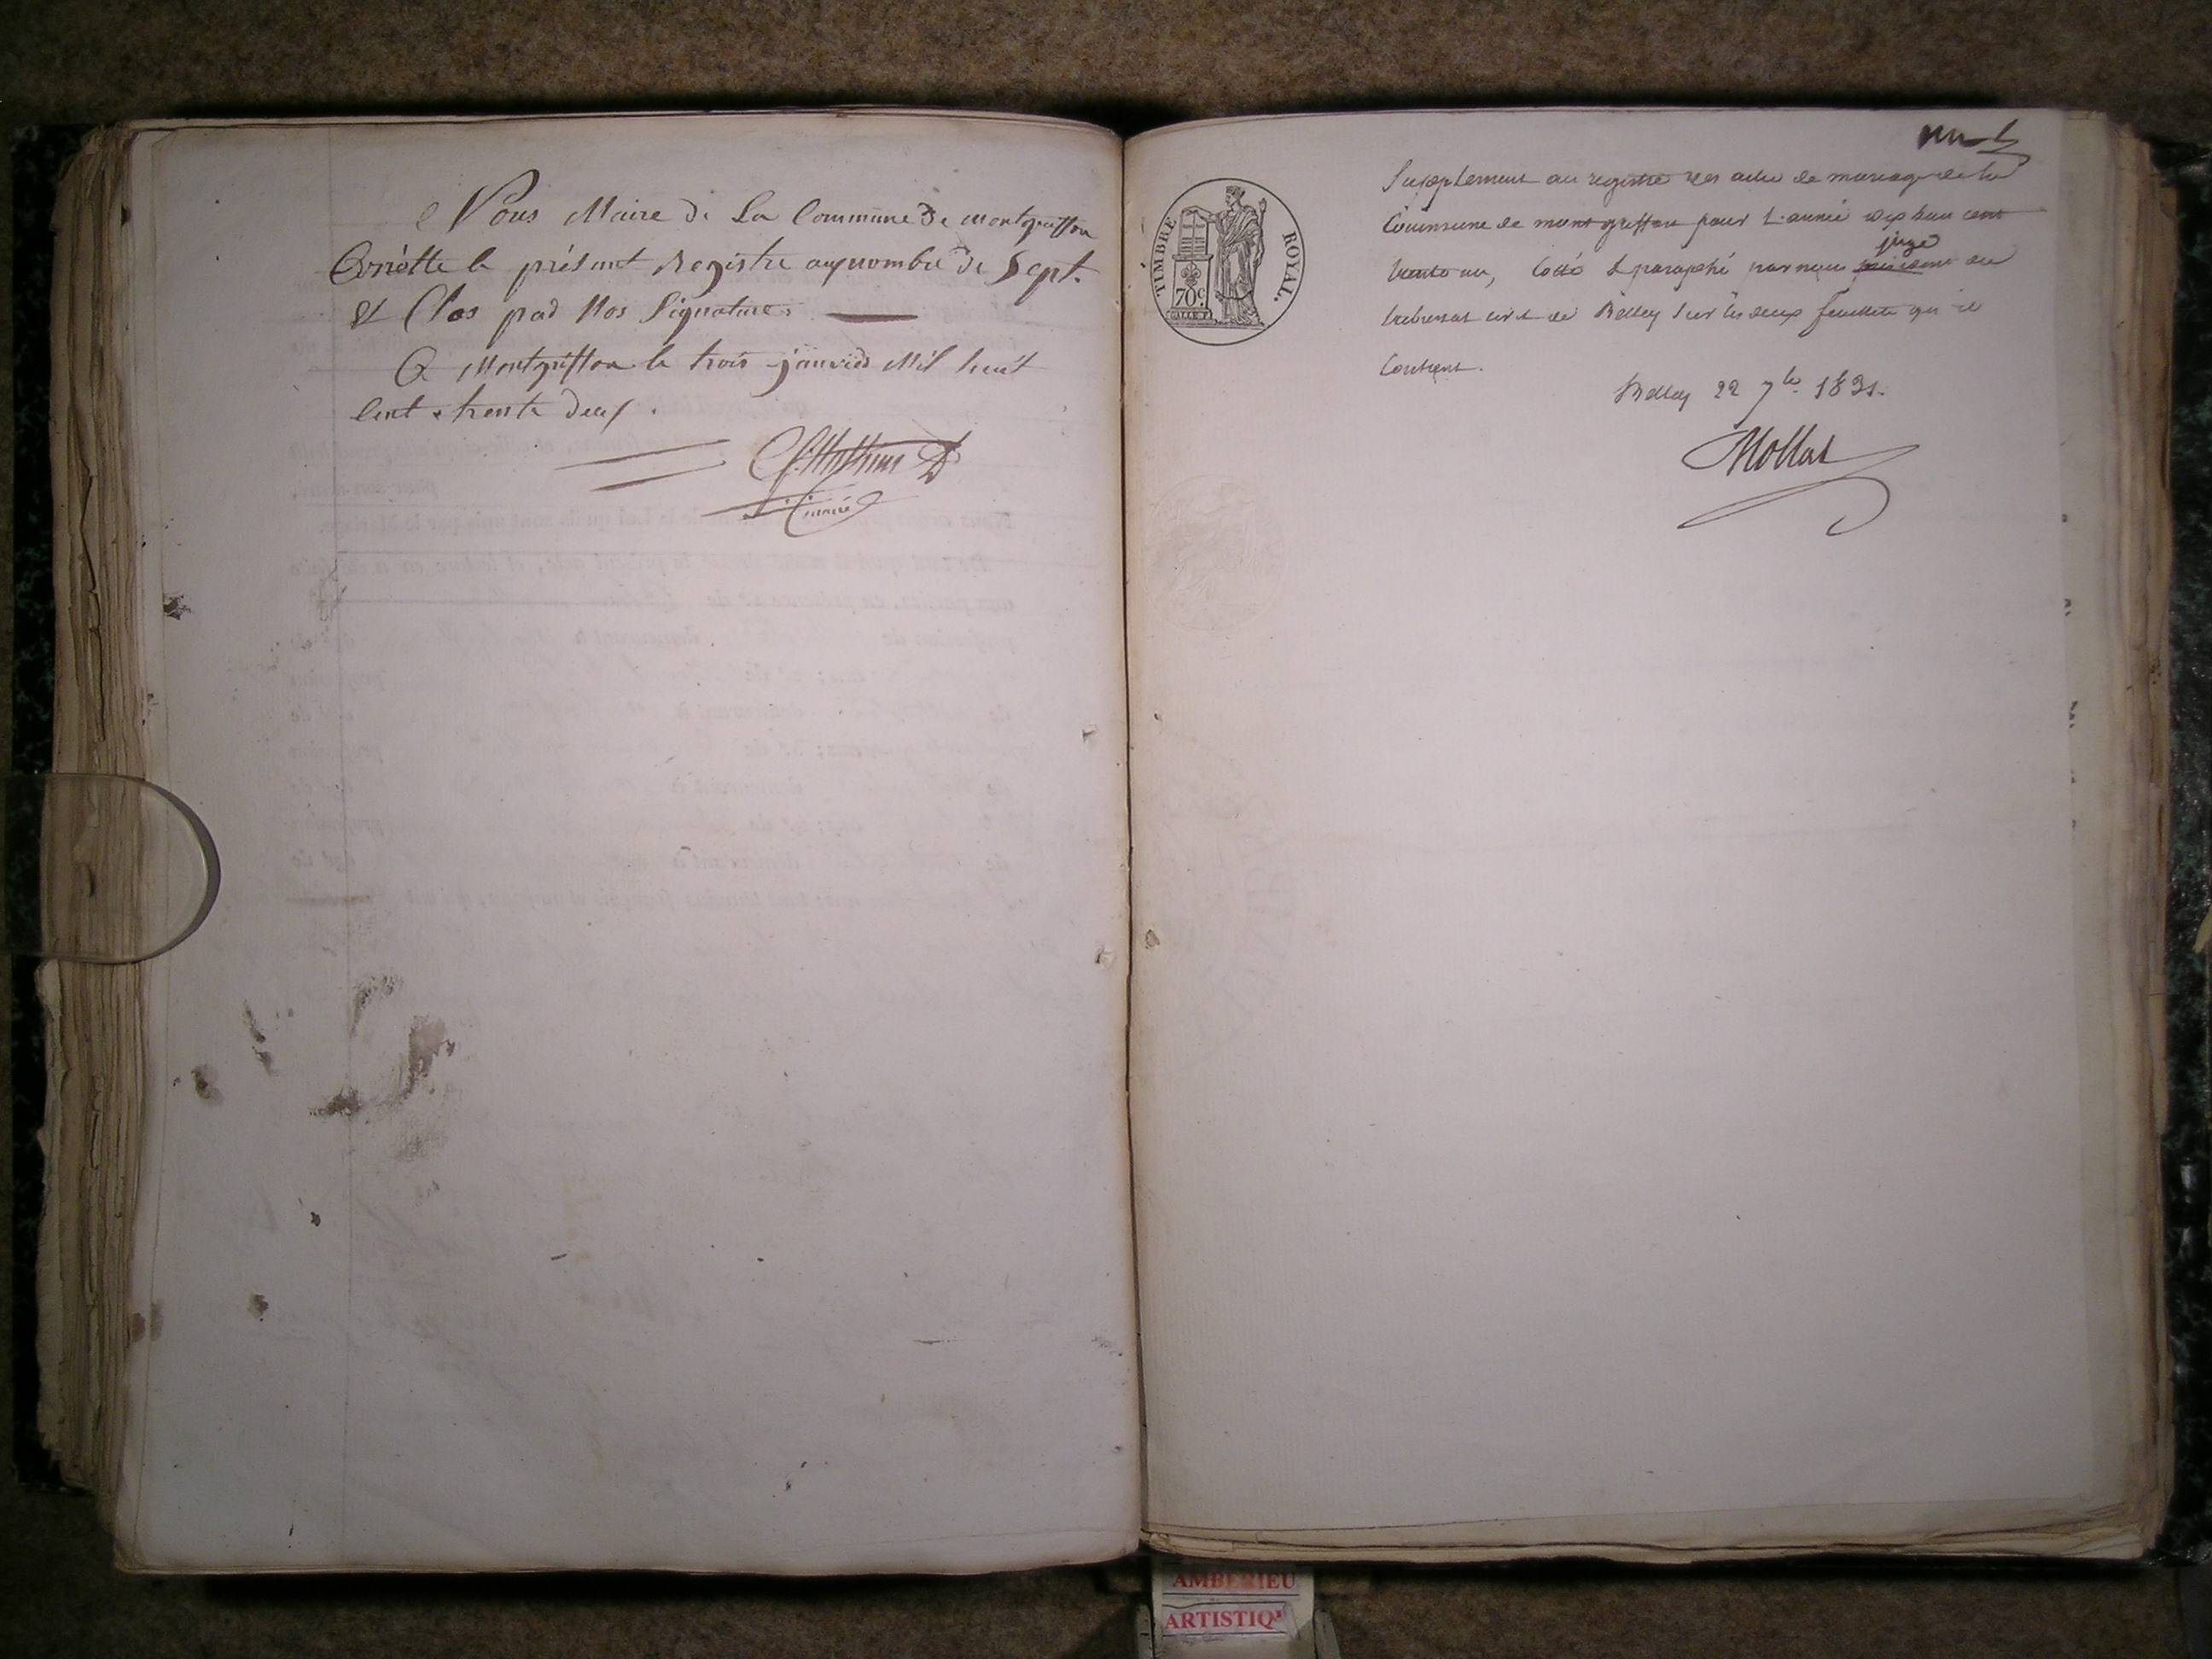 Nous Maire de La Commune De montgriffon
Arrêtte le présent Registre au nombre de Sept.
Et Clos par Nos Signature.
A Montgriffon le trois janvier Mil huit
Cent trente deux.
TIMBRE ROYAL.
70c
Supplement au registre des actes de mariage de la
Commune de montgriffon pour l'année dix huit cent
trente un, Cotté & paraphé par nous juge au
tribunal civil de Belley sur les deux feuillets qu'il
Contient.
Belley 22 7bre 1831.
Mollat
AMBERIEU
ARTISTIQ